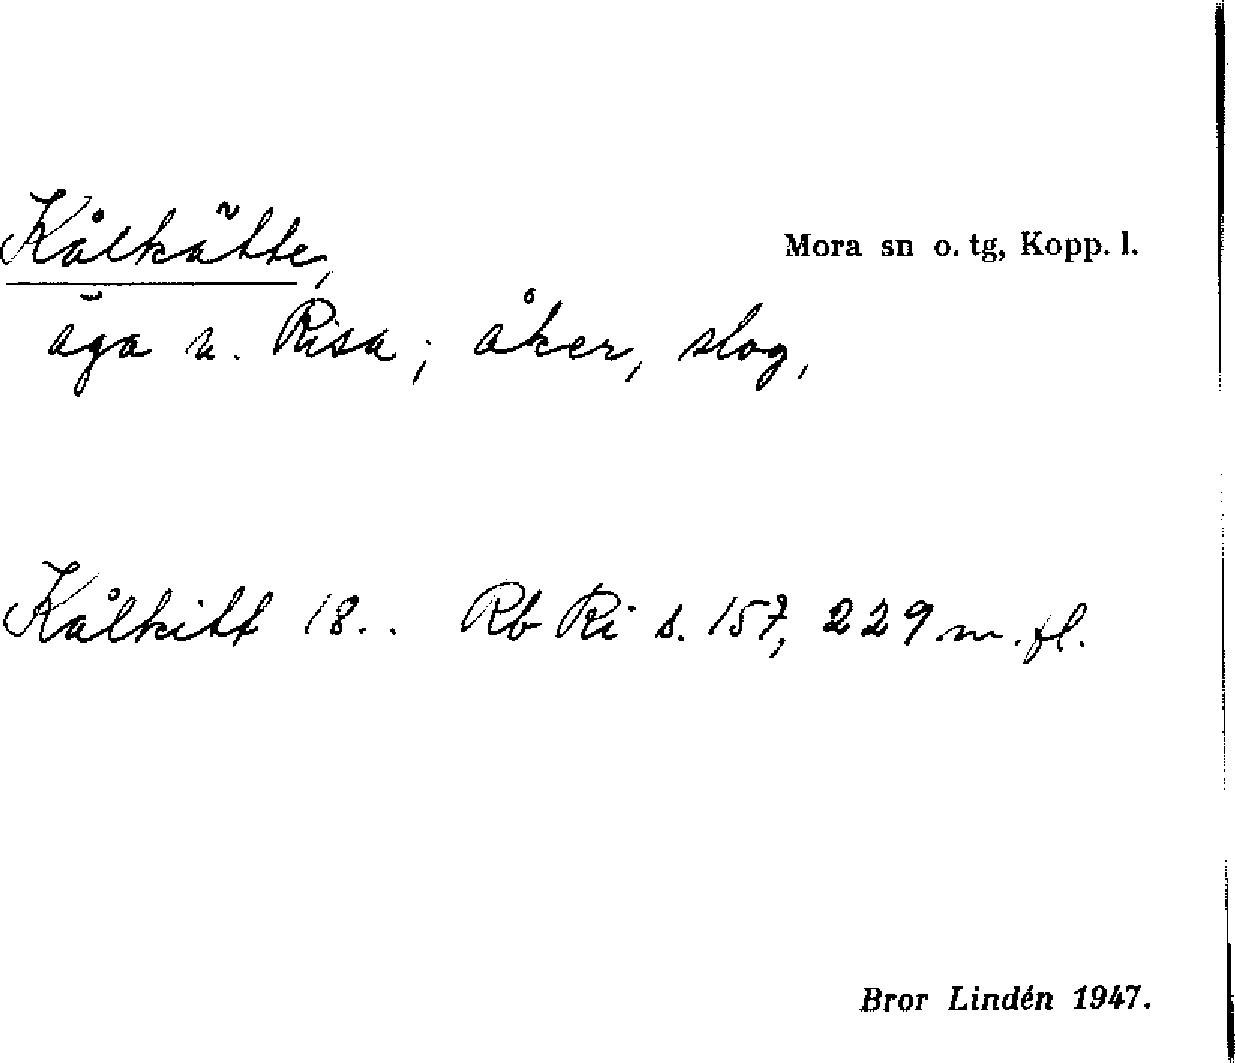 Kålkätte,
Mora sn o. tg, Kopp. l.
äga u. Risa; åker, slog,
Kålkitt 18.. Rb Ri s. 157, 229 m. fl.
Bror Lindén 1947.